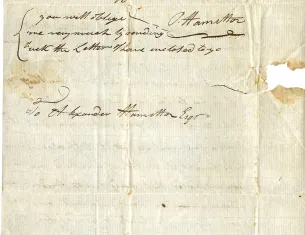 you will oblige P. Hamilton
me very much by sending
back the Letters I have inclosed to yo
To Alexander Hamilton Esqr